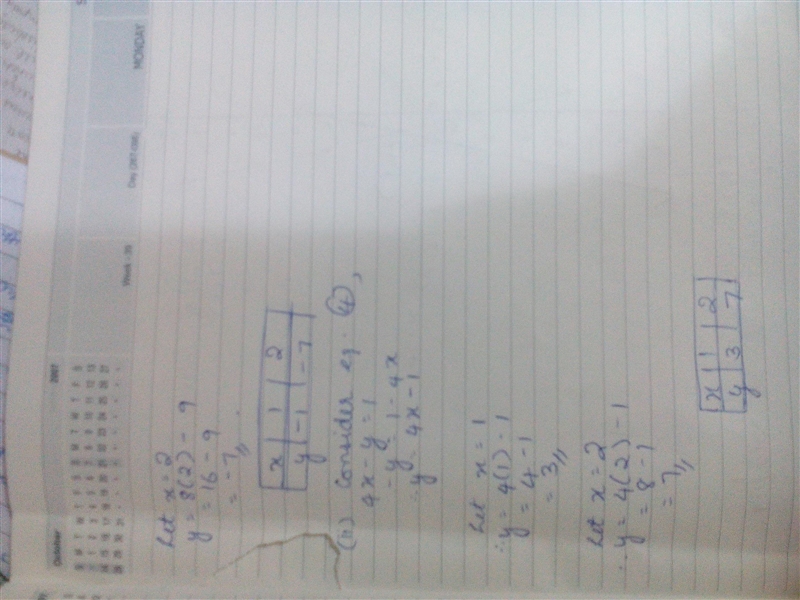 October
2007
Week - 39
Day (267-098)
MONDAY
Let x = 2
y = 8(2) - 9
= 16 - 9
= -7
x | 1 | 2
y | -1 | -7
(ii) Consider eq. (4),
4x - y = 1
- y = 1 - 4x
∴ y = 4x - 1
Let x = 1
∴ y = 4(1) - 1
= 4 - 1
= 3
Let x = 2
∴ y = 4(2) - 1
= 8 - 1
= 7
x | 1 | 2
y | 3 | 7